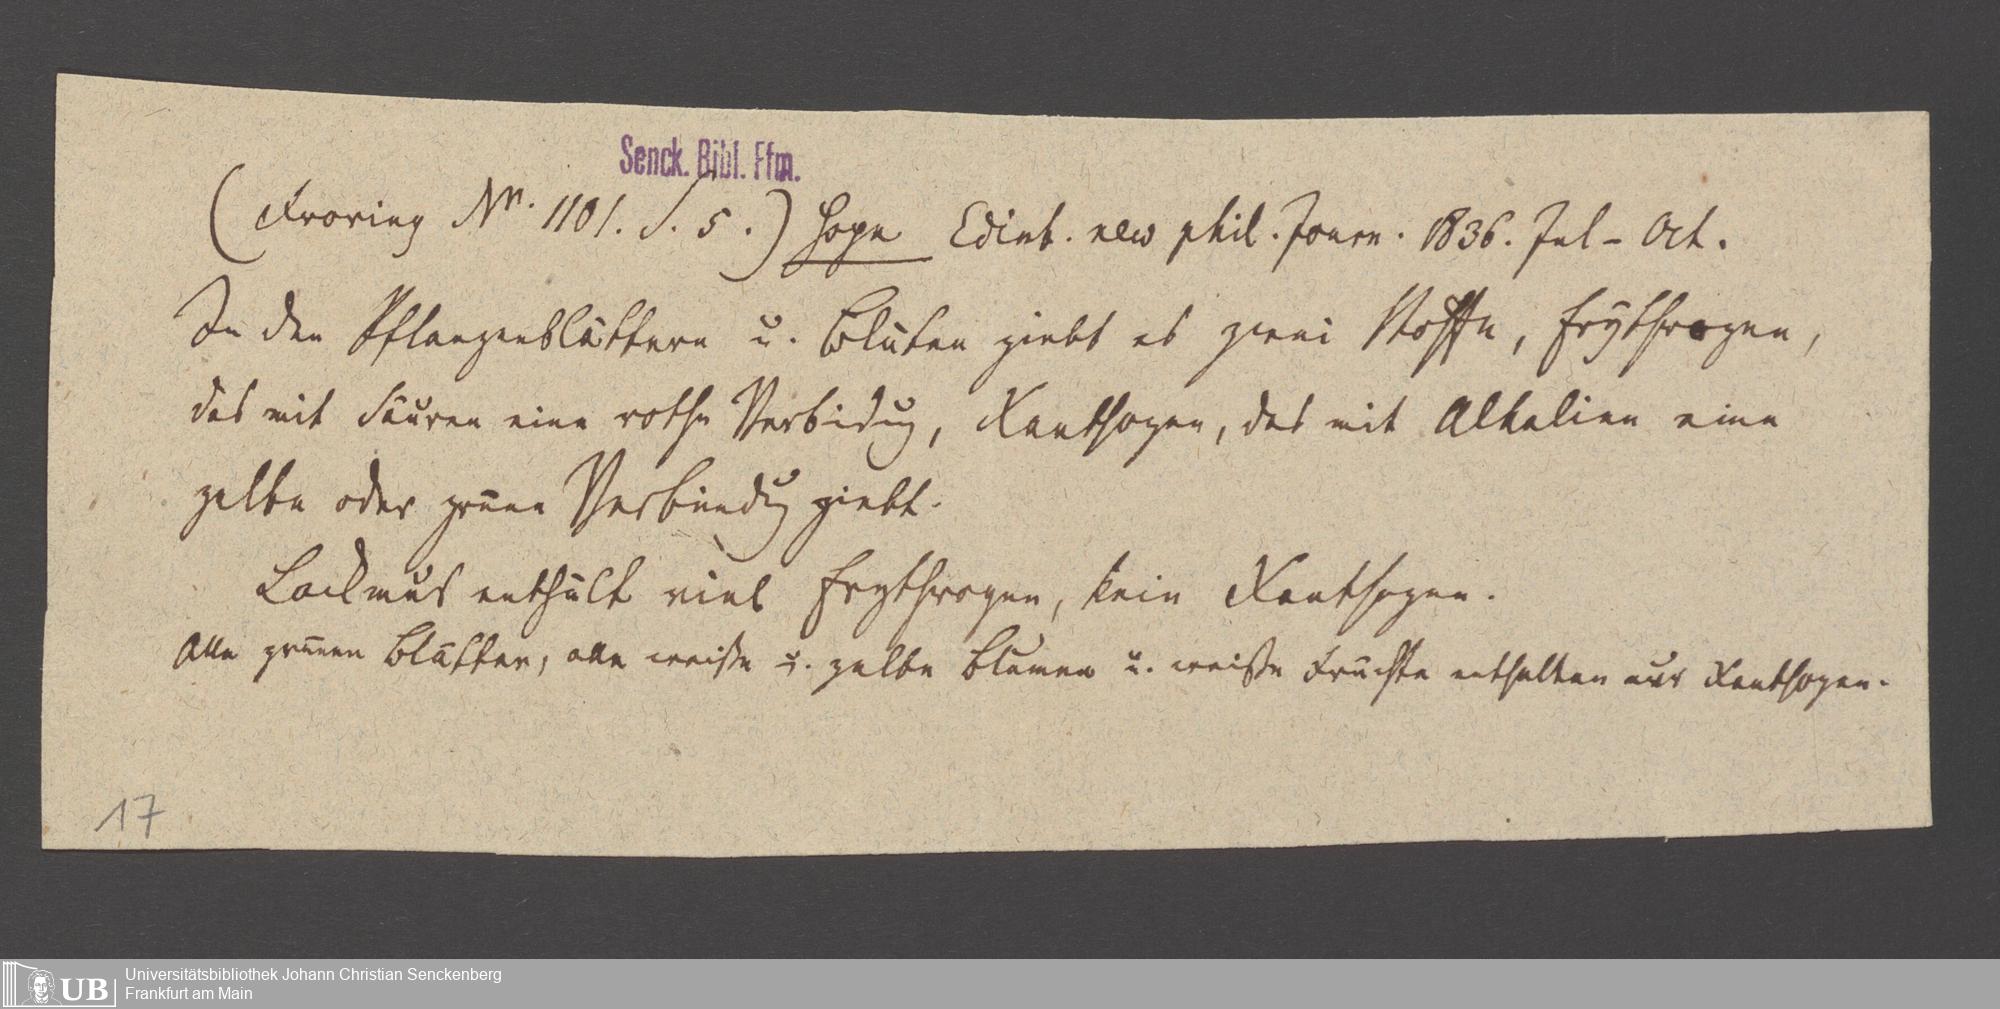 Senck. Bibl. Ffm.
(Froriep Nr. 1101. S. 5.) Hope Edinb. new phil. Journ. 1836. Jul - Oct.
In den Pflanzenblättern u. Blüten giebt es zwei Stoffe, Erythrogen,
das mit Säuren eine rothe Verbidug, Xanthogen, das mit Alkalien eine
gelbe oder grüne Verbindug giebt.
Lackmus enthält viel Erythrogen, kein Xanthogen.
Alle grünen Blätter, alle weiße u. gelbe Blumen u. weiße Früchte enthalten nur Xanthogen.
17
UB
Universitätsbibliothek Johann Christian Senckenberg
Frankfurt am Main